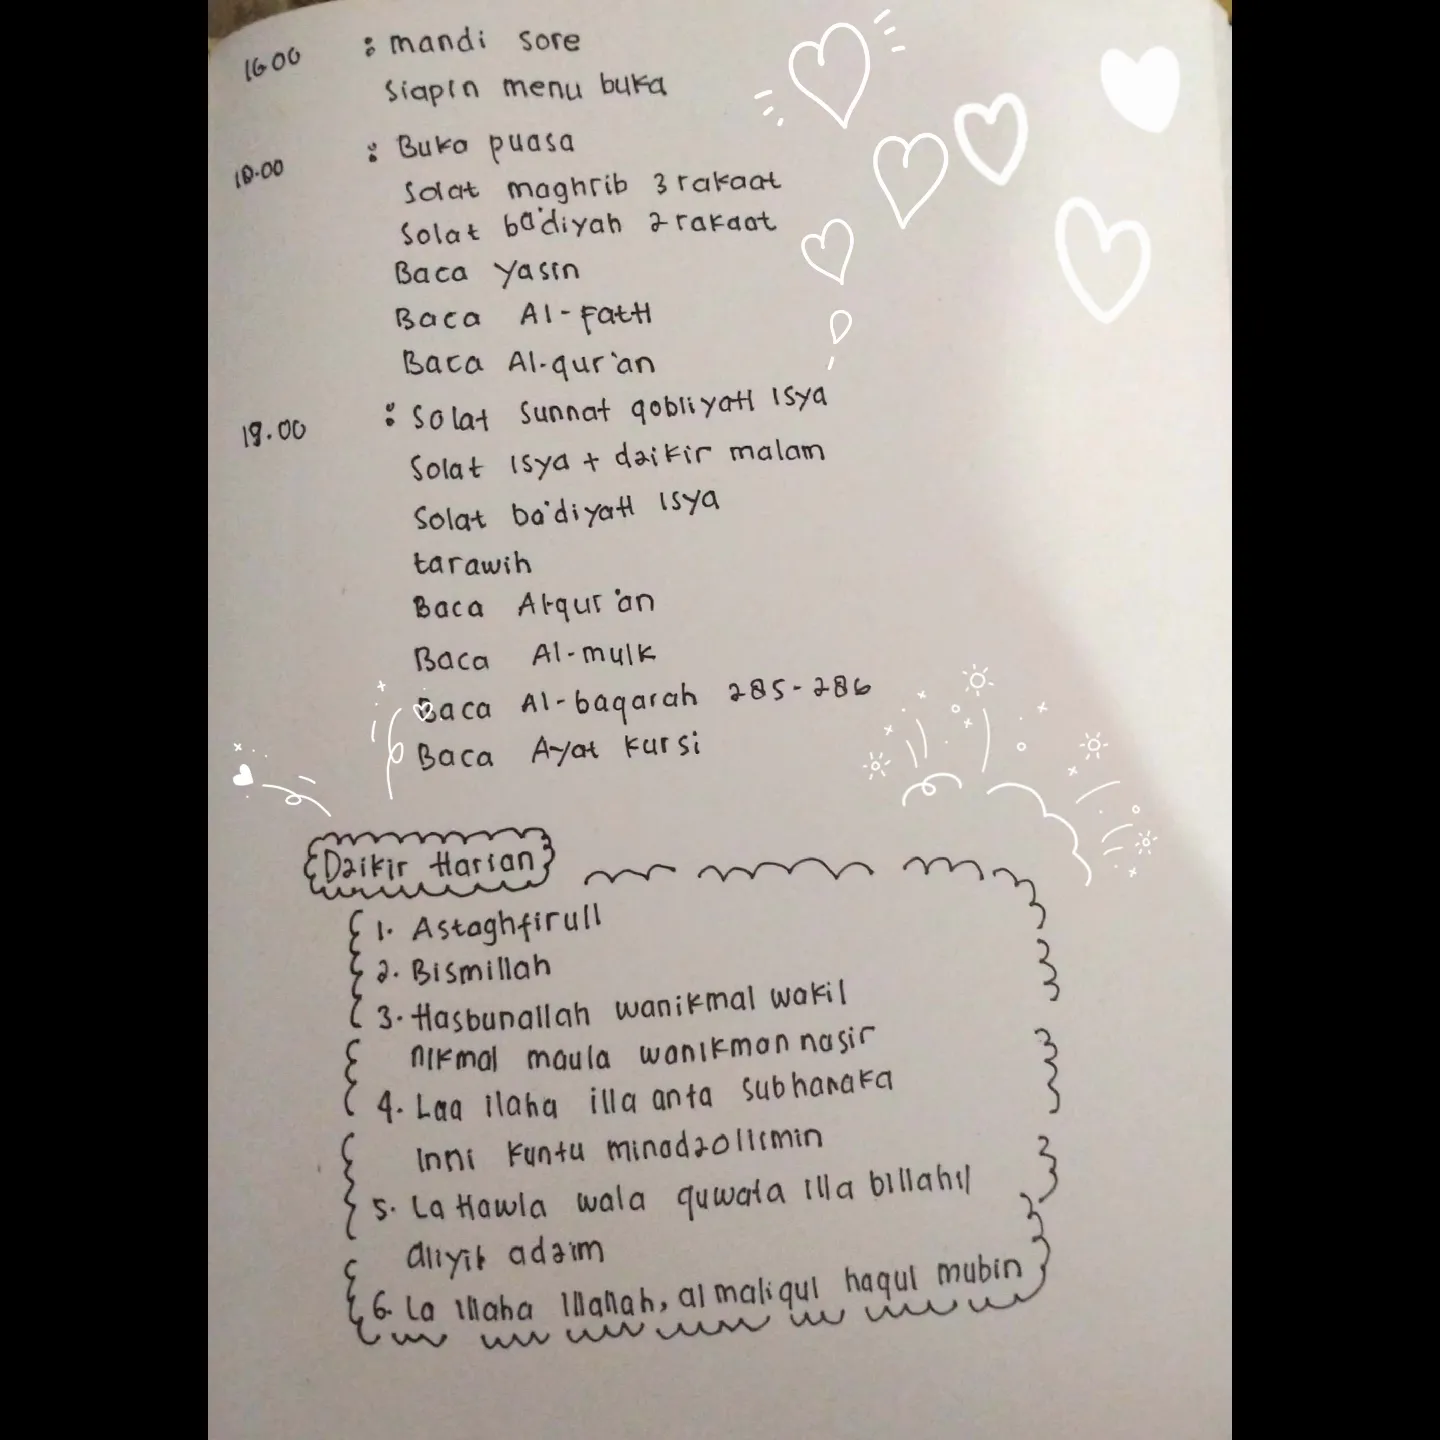 1600 : mandi sore
Siapin menu buka
18.00 : Buka puasa
Solat maghrib 3 rakaat
Solat ba'diyah 2 rakaat
Baca yasin
Baca Al-fatH
Baca Al-qur'an
19.00 : Solat Sunnat qobliyatI Isya
Solat Isya + dzikir malam
Solat ba'diyatI Isya
tarawih
Baca Al-qur'an
Baca Al-mulk
Baca Al-baqarah 285-286
Baca Ayat kursi
Dzikir Harian
1. Astaghfirull
2. Bismillah
3. Hasbunallah wanikmal wakil
nikmal maula wanikman nasir
4. Laa ilaha illa anta subhanaka
Inni kuntu minadzollimin
5. La Hawla wala quwata illa billahil
aliyil adzim
6. La illaha Illallah, al maliqul haqul mubin